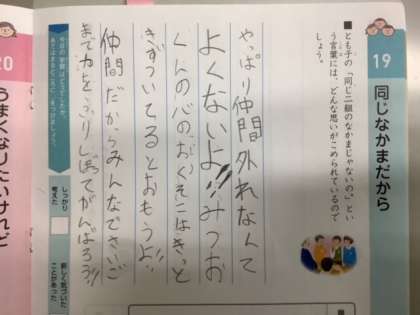 19 同じなかまだから
■とも子の「同じ二組のなかまじゃないの。」とい
う言葉には、どんな思いがこめられているので
しょう。
やっぱり仲間外れなんて
よくないよ!!みつお
くんの心のおくそこはきっと
きずついてるとおもうよ!!
仲間だからみんなでさいご
まで力をふりしぼてがんばろう!!
今日の学習はどうでしたか。
あてはまるところに、色をつけましょう。
しっかり
考えた
新しく気づいた
ことがあった
20
うまくなりたいけれど